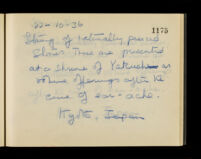 22-10-36
1175
String of naturally pierced
stones. These are presented
at a shrine of Yakushi as
votive offerings after the
cure of ear-ache.
Kyoto, Japan